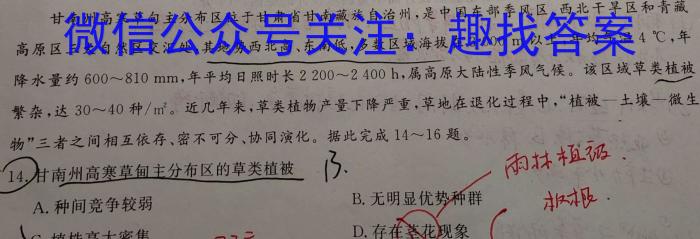 甘南高寒草甸主分布区位于甘肃省甘南藏族自治州,是中国东部季风区、西北干旱区和青藏
高原区三大自然区交汇处,其地势西北高、东南低,多数区域海拔在 000 m以上,年均气温4 ℃,年
微信公众号关注:趣找答案
降水量约600~810 mm,年平均日照时长2 200~2 400 h,属高原大陆性季风气候。该区域草类植被
繁杂,达30~40种/㎡。近几年来,草类植物产量下降严重,草地在退化过程中,“植被—土壤—微生
物”三者之间相互依存、密不可分、协同演化。据此完成14~16题。
14.甘南州高寒草甸主分布区的草类植被
B.
雨林植被.
板根
A.种间竞争较弱
B.无明显优势种群
C.植株高大密集
D.存在茎花现象